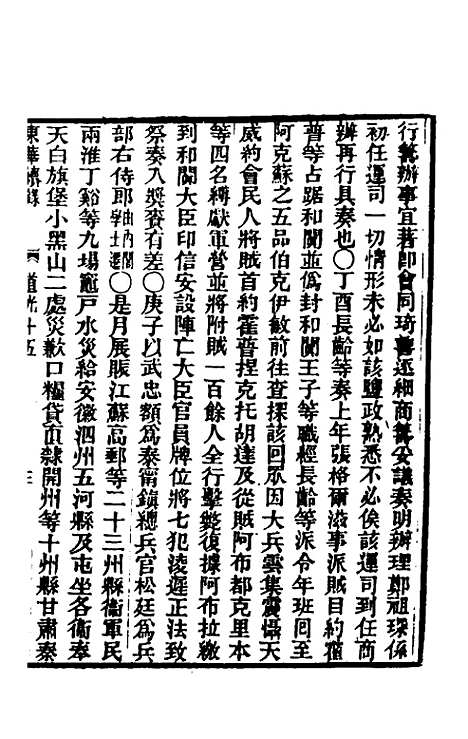 行籌辦事宜著卽會同琦善逐細商籌妥議奏明辦理鄭祖琛係
初任運司一切情形未必如該鹽政熟悉不必俟該運司到任商
辦再行具奏也〇丁酉長齡等奏上年張格爾滋事派賊目約霍
普等占踞和闐並僞封和闐王子等職經長齡等派令年班回至
阿克蘇之五品伯克伊敏前往查探該回眾因大兵雲集震懾天
威約會民人將賊首約霍普捏克托胡達及從賊阿布都克里木
等四名縛獻軍營並將附賊一百餘人全行擊斃復據阿布拉繳
到和闐大臣印信安設陣亡大臣官員牌位將七犯淩遲正法致
祭奏入奬賚有差〇庚子以武忠額爲泰甯鎮總兵官松廷爲兵
部右侍郎由內閣學士遷〇是月展賑江蘇高郵等二十三州縣衞軍民
兩淮丁谿等九場竈戶水災給安徽泗州五河縣及屯坐各衞奉
天白旗堡小黑山二處災歉口糧貸直隸開州等十州縣甘肅秦
東華續錄 道光十五 三